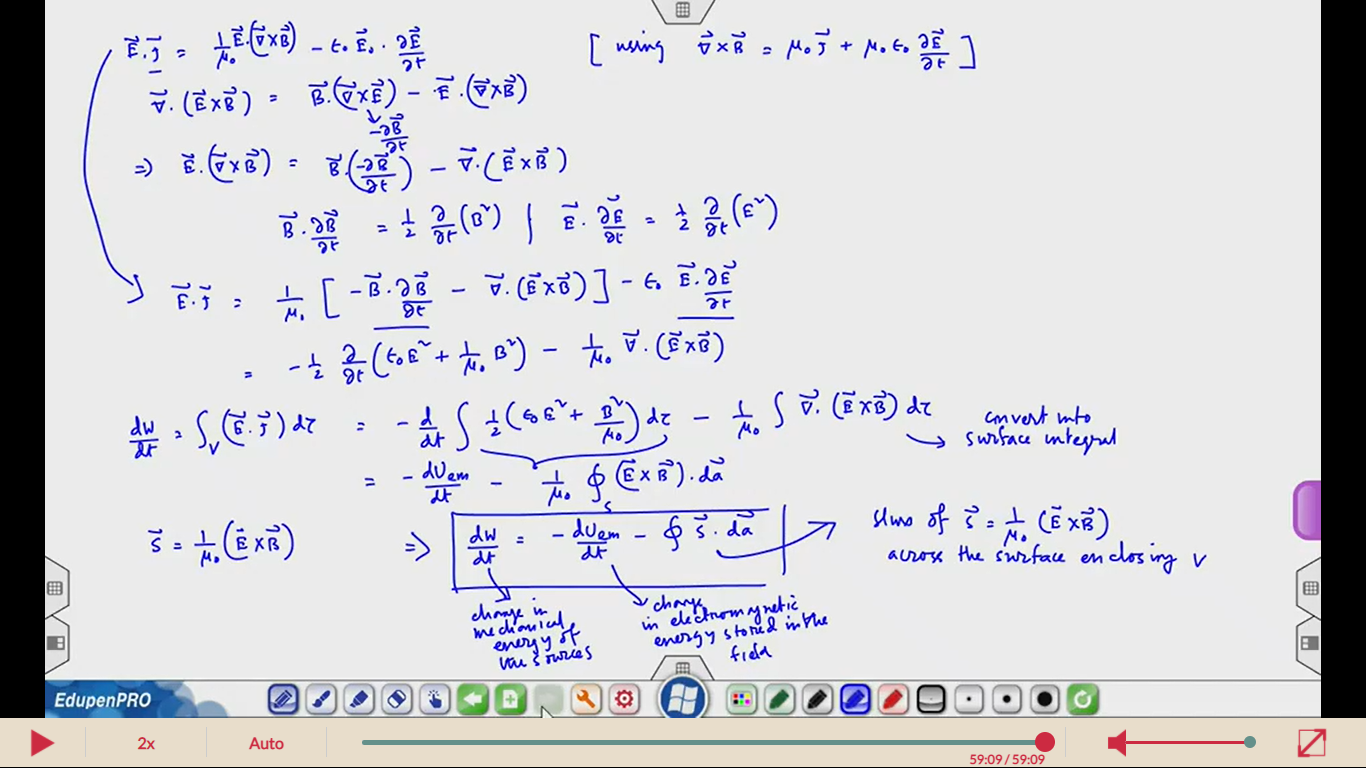 E⃗.J⃗ = 1/μ₀ E⃗.(∇⃗×B⃗) − ε₀ E⃗₀ . ∂E⃗/∂t [ using ∇⃗×B⃗ = μ₀ J⃗ + μ₀ ε₀ ∂E⃗/∂t ]
∇⃗.(E⃗×B⃗) = B⃗.(∇⃗×E⃗) − E⃗.(∇⃗×B⃗)
−∂B⃗/∂t
⇒ E⃗.(∇⃗×B⃗) = B⃗.(−∂B⃗/∂t) − ∇⃗.(E⃗×B⃗)
B⃗.∂B⃗/∂t = 1/2 ∂/∂t (B²) | E⃗.∂E⃗/∂t = 1/2 ∂/∂t (E²)
E⃗.J⃗ = 1/μ₀ [ −B⃗.∂B⃗/∂t − ∇⃗.(E⃗×B⃗) ] − ε₀ E⃗.∂E⃗/∂t
= −1/2 ∂/∂t (ε₀E² + 1/μ₀ B²) − 1/μ₀ ∇⃗.(E⃗×B⃗)
dW/dt = ∫_V (E⃗.J⃗) dτ = −d/dt ∫ 1/2 (ε₀E² + B²/μ₀) dτ − 1/μ₀ ∫ ∇⃗.(E⃗×B⃗) dτ
convert into
surface integral
= −dU_em/dt − 1/μ₀ ∮_S (E⃗×B⃗).da⃗
S⃗ = 1/μ₀ (E⃗×B⃗) ⇒ dW/dt = −dU_em/dt − ∮ S⃗.da⃗
flux of S⃗ = 1/μ₀ (E⃗×B⃗)
across the surface enclosing V
change in
mechanical
energy of
the sources
change
in electromagnetic
energy stored in the
field
EdupenPRO
2x Auto 59:09 / 59:09